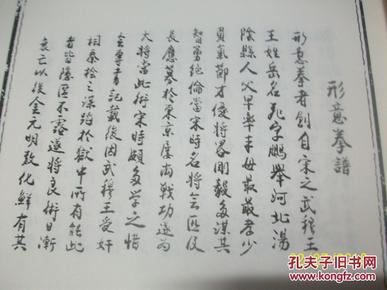 形意拳譜
形意拳者創自宋之武穆王
王姓岳名飛字鵬舉河北湯
陰縣人父早卒事母最孝少
負氣節才優將略剛毅多謀其
智勇絶倫當宋時名將云匹仅
長應募於東京屢戰功遂為
大將當此術宋時頗多學之惜
無專書記載後因武穆王受奸
相秦檜之謀路於獄中所有能此
者皆隱匿不露遂將良術日漸
衰亡以後金元明教化鮮有其
孔夫子旧书网
KONGFZ.COM